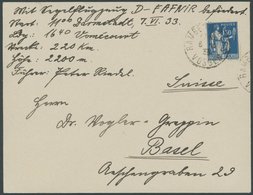 Mit Segelflugzeug D-FAFNIR befördert.
Start: 1106 Darmstadt, 7.VI.33.
Ldg: 1640 Vomécourt
Werk: 220 km.
Höhe: 2200 m.
Führer: Peter Riedel.
Suisse
Herrn
Dr. Vogler-Greppin
Basel
Aeschengraben 23